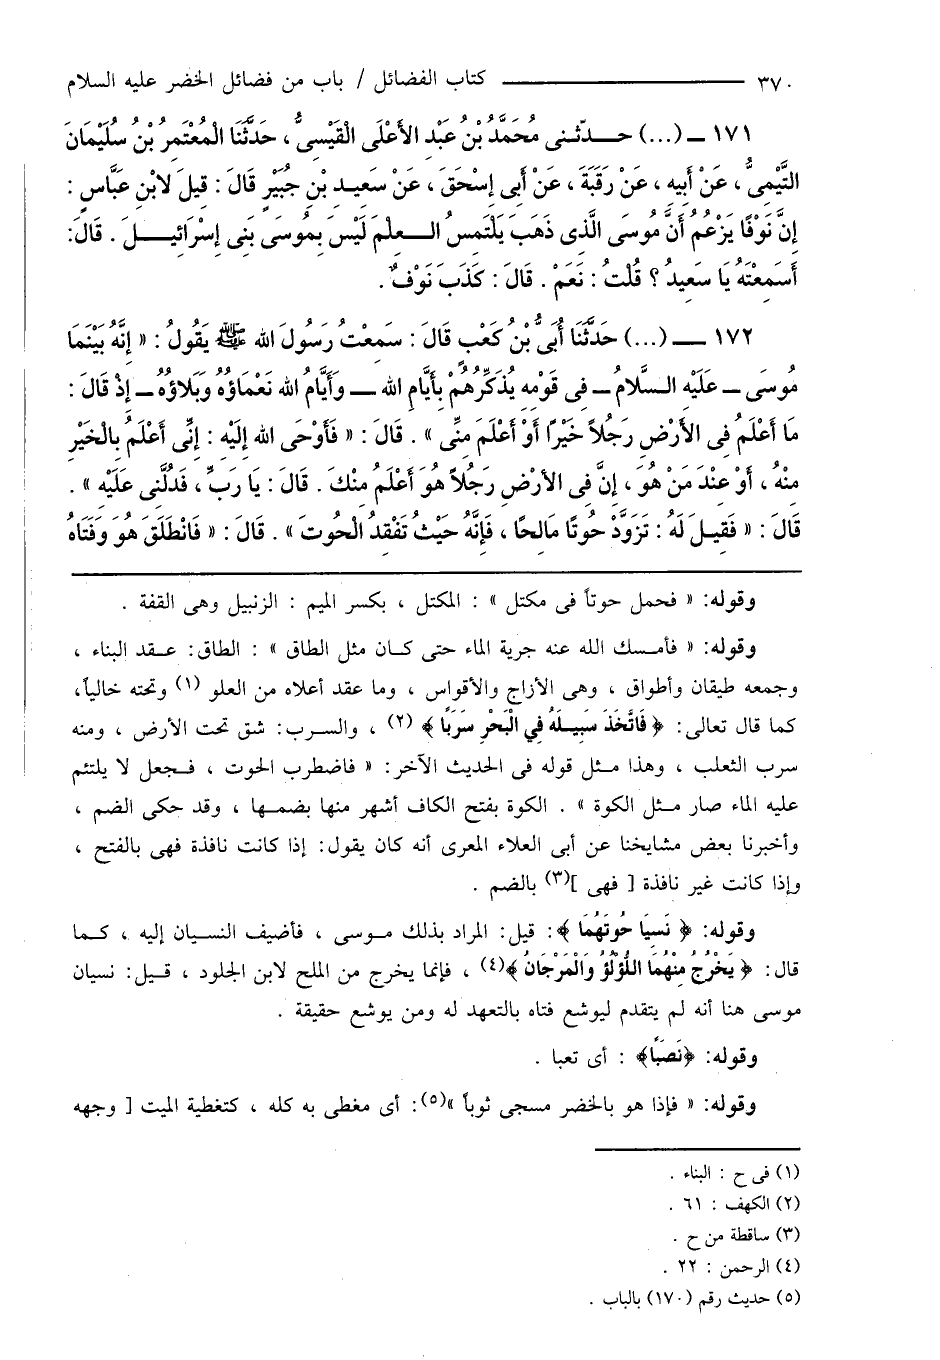 ٣٧٠ ــــــــ كتاب الفضائل / باب من فضائل الخضر عليه السلام
١٧١ ــ (...) حــدّثنى مُحَمَّدُ بْنُ عَبْد الأَعْلَى الْقَيْسىُّ ، حَدَّثَنَا الْمُعْتَمِرُ بْنُ سُلَيْمَانَ
التَّيْمِىُّ ، عَنْ أَبِيهِ ، عَنْ رَقَبَةَ ، عَنْ أَبِى إِسْحَقَ ، عَنْ سَعِيدِ بْنِ جُبَيْرٍ قَالَ : قِيلَ لابْنِ عَبَّاسٍ :
إِنَّ نَوْفًا يَزْعُمُ أَنَّ مُوسَى الَّذِى ذَهَبَ يَلْتَمِسُ الــعِلْمَ لَيْسَ بِمُوسَى بَنِى إِسْرَائِيــلَ . قَالَ:
أَسَمِعْتَهُ يَا سَعِيدُ ؟ قُلْتُ : نَعَمْ . قَالَ : كَذَبَ نَوْفٌ .
١٧٢ ــ (...) حَدَّثَنَا أُبَىُّ بْنُ كَعْبٍ قَالَ : سَمِعْتُ رَسُولَ الله ﷺ يَقُولُ : « إِنَّهُ بَيْنَمَا
مُوسَى ــ عَلَيْهِ السَّلامُ ــ فِى قَوْمِهِ يُذَكِّرُهُمْ بِأَيَّامِ اللهِ ــ وَأَيَّامُ اللهِ نَعْمَاؤُهُ وَبَلاؤُهُ ــ إِذْ قَالَ :
مَا أَعْلَمُ فِى الأَرْضِ رَجُلاً خَيْرًا أَوْ أَعْلَمَ مِنِّى » . قَالَ : « فَأَوْحَى اللهُ إِلَيْهِ : إِنِّى أَعْلَمُ بِالْخَيْرِ
مِنْهُ ، أَوْ عِنْدَ مَنْ هُوَ ، إِنَّ فِى الأَرْضِ رَجُلاً هُوَ أَعْلَمُ مِنْكَ . قَالَ : يَا رَبِّ ، فَدُلَّنِى عَلَيْهِ » .
قَالَ : « فَقِيلَ لَهُ : تَزَوَّدْ حُوتًا مَالِحًا ، فَإِنَّهُ حَيْثُ تَفْقِدُ الْحُوتَ » . قَالَ : « فَانْطَلَقَ هُوَ وَفَتَاهُ
وقوله: « فحمل حوتاً فى مكتل » : المكتل ، بكسر الميم : الزنبيل وهى القفة .
وقوله: « فأمسك الله عنه جرية الماء حتى كان مثل الطاق » : الطاق: عقد البناء ،
وجمعه طيقان وأطواق ، وهى الأزاج والأقواس ، وما عقد أعلاه من العلو (١) وتحته خالياً،
كما قال تعالى: ﴿ فَاتَّخَذَ سَبِيلَهُ فِي الْبَحْرِ سَرَبًا ﴾ (٢) ، والسرب: شق تحت الأرض ، ومنه
سرب الثعلب ، وهذا مثل قوله فى الحديث الآخر: « فاضطرب الحوت ، فجعل لا يلتئم
عليه الماء صار مثل الكوة » . الكوة بفتح الكاف أشهر منها بضمها ، وقد حكى الضم ،
وأخبرنا بعض مشايخنا عن أبى العلاء المعرى أنه كان يقول: إذا كانت نافذة فهى بالفتح ،
وإذا كانت غير نافذة [ فهى ](٣) بالضم .
وقوله: ﴿ نَسِيَا حُوتَهُمَا ﴾: قيل: المراد بذلك موسى ، فأضيف النسيان إليه ، كما
قال: ﴿ يَخْرُجُ مِنْهُمَا اللُّؤْلُؤُ وَالْمَرْجَانُ ﴾(٤) ، فإنما يخرج من الملح لابن الجلود ، قيل: نسيان
موسى هنا أنه لم يتقدم ليوشع فتاه بالتعهد له ومن يوشع حقيقة .
وقوله: ﴿نَصَبًا﴾ : أى تعبا .
وقوله: « فإذا هو بالخضر مسجى ثوباً »(٥): أى مغطى به كله ، كتغطية الميت [ وجهه
(١) فى ح : البناء .
(٢) الكهف : ٦١ .
(٣) ساقطة من ح .
(٤) الرحمن : ٢٢ .
(٥) حديث رقم (١٧٠) بالباب .